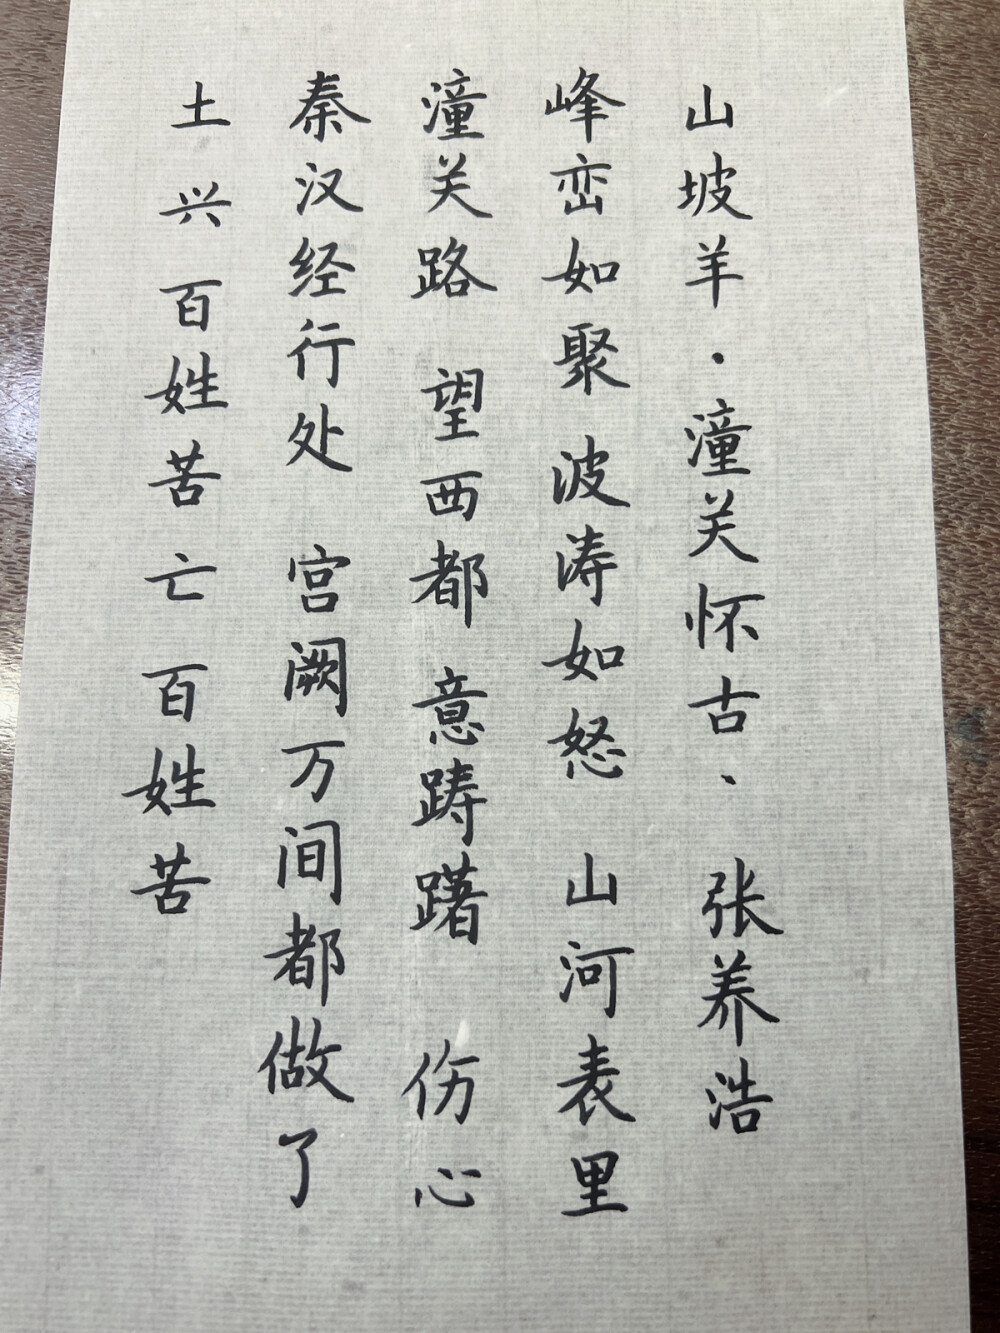 山坡羊·潼关怀古· 张养浩
峰峦如聚 波涛如怒 山河表里
潼关路 望西都 意踌躇 伤心
秦汉经行处 宫阙万间都做了
土 兴百姓苦亡百姓苦